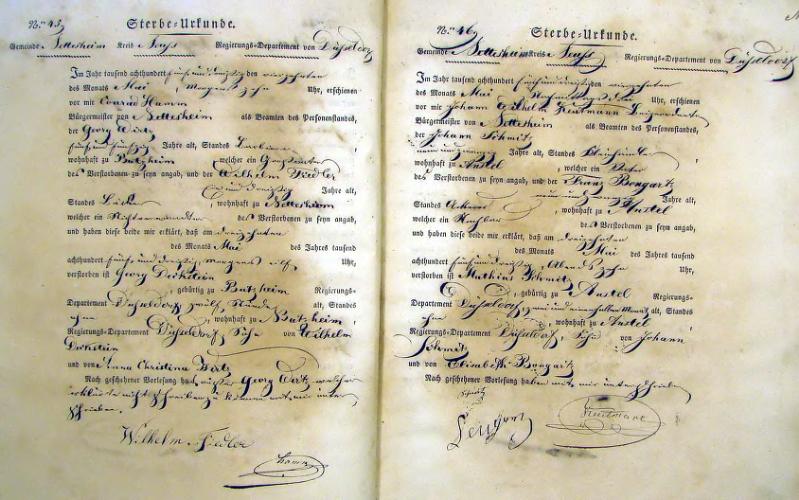 N.ro 45.
Sterbe-Urkunde.
Gemeinde Nettesheim Kreis Neuss Regierungs-Departement von Düsseldorf
Im Jahr tausend achthundert fünf und dreißig den vierzehnten
des Monats Mai, morgens zehn Uhr, erschienen
vor mir Conrad Hamm
Bürgermeister von Nettesheim als Beamten des Personenstandes,
der Georg Wirtz
fünf und fünfzig Jahre alt, Standes
wohnhaft zu Butzheim, welcher ein Großvater
des Verstorbenen zu seyn angab, und der Wilhelm Fiedler
ein und dreißig Jahre alt,
Standes, wohnhaft zu Nettesheim
welcher ein Nichtverwandter des Verstorbenen zu seyn angab,
und haben diese beide mir erklärt, daß am dreizehnten
des Monats Mai des Jahres tausend
achthundert fünf und dreißig morgens elf Uhr,
verstorben ist Georg Derkstein
, gebürtig zu Butzheim Regierungs-
Departement Düsseldorf zwölf Stunden alt, Standes
wohnhaft zu Butzheim,
Regierungs-Departement Düsseldorf, Sohn von Wilhelm
Derkstein
und von Anna Christina Wirtz
Nach geschehener Vorlesung hat Georg Wirtz welcher
erklärte nicht schreiben zu können mit mir unter
schrieben.
Wilhelm Fiedler
Hamm
N.ro 46.
Sterbe-Urkunde.
Gemeinde Nettesheim Kreis Neuss Regierungs-Departement von Düsseldorf
Im Jahr tausend achthundert fünf und dreißig den vierzehnten
des Monats Mai Nachmittags Uhr, erschienen
vor mir Johann Wilhelm Beigeordneter
Bürgermeister von Nettesheim als Beamten des Personenstandes,
der Johann Schmitz
neun und zwanzig Jahre alt, Standes
wohnhaft zu Anstel, welcher ein Vater
des Verstorbenen zu seyn angab, und der Franz Bongartz
neun und zwanzig Jahre alt,
Standes Ackerer, wohnhaft zu Anstel
welcher ein Nachbar des Verstorbenen zu seyn angab,
und haben diese beide mir erklärt, daß am dreizehnten
des Monats Mai des Jahres tausend
achthundert fünf und dreißig Abends zehn Uhr,
verstorben ist Mathias Schmitz
, gebürtig zu Anstel Regierungs-
Departement Düsseldorf, und einen halben Monat alt, Standes
, wohnhaft zu Anstel
Regierungs-Departement Düsseldorf, Sohn von Johann
Schmitz
und von Elisabeth Bongartz
Nach geschehener Vorlesung haben mit mir unterschrieben
Schmitz